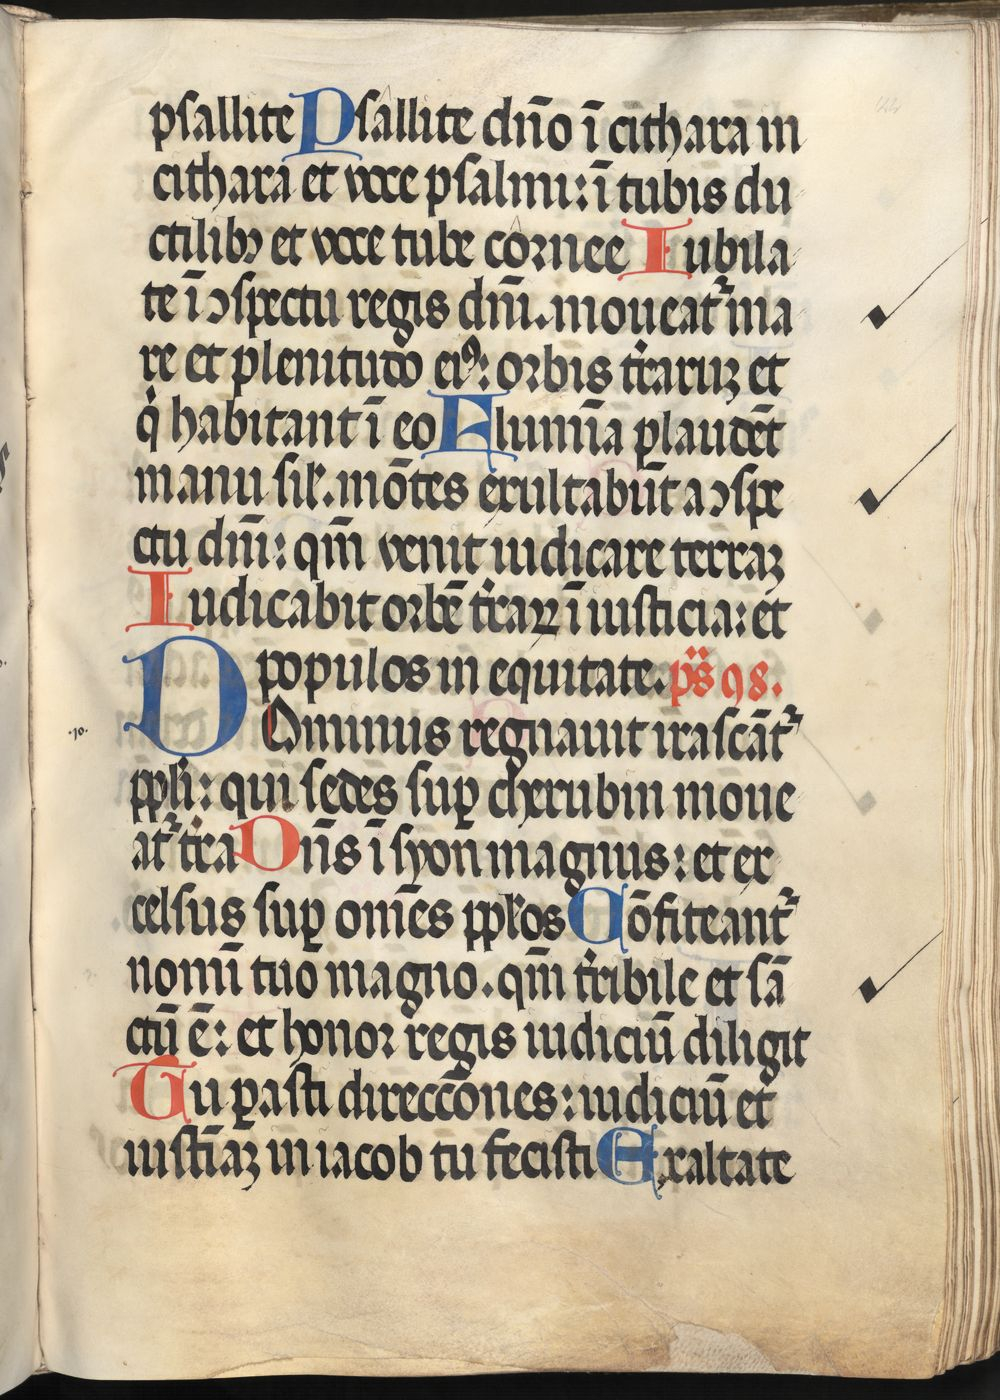 psallite Psallite dn̄o ī cithara in
cithara et voce psalmi: ī tubis du
ctilibꝫ et voce tube cornee Iubila
te ī ↄspectu regis dn̄i. moueat᷑ ma
re et plenitudo eiꝰ: orbis t̄raruꝫ et
qͥ habitant ī eo Flumīa plaudēt
manu sil̵. mōtes exultabūt a ↄspe
ctu dn̄i: qm̄ venit iudicare terraꝫ
Iudicabit orbē t̄raꝝ ī iusticia: et
populos in equitate. ps̄ 98.
DOminus regnauit irascāt᷑
ppl̵i: qui sedes suꝑ cherubin moue
at᷑ t̄ra Dn̄s ī syon magnus: et ex
celsus suꝑ om̄es ppl̵os Cōfiteant᷑
nomī tuo magno. qm̄ t̄ribile et sā
ctū ē: et honor regis iudiciū diligit
Tu ꝑasti direccōnes: iudiciū et
iustīaꝫ in iacob tu fecisti Exaltate
.10.